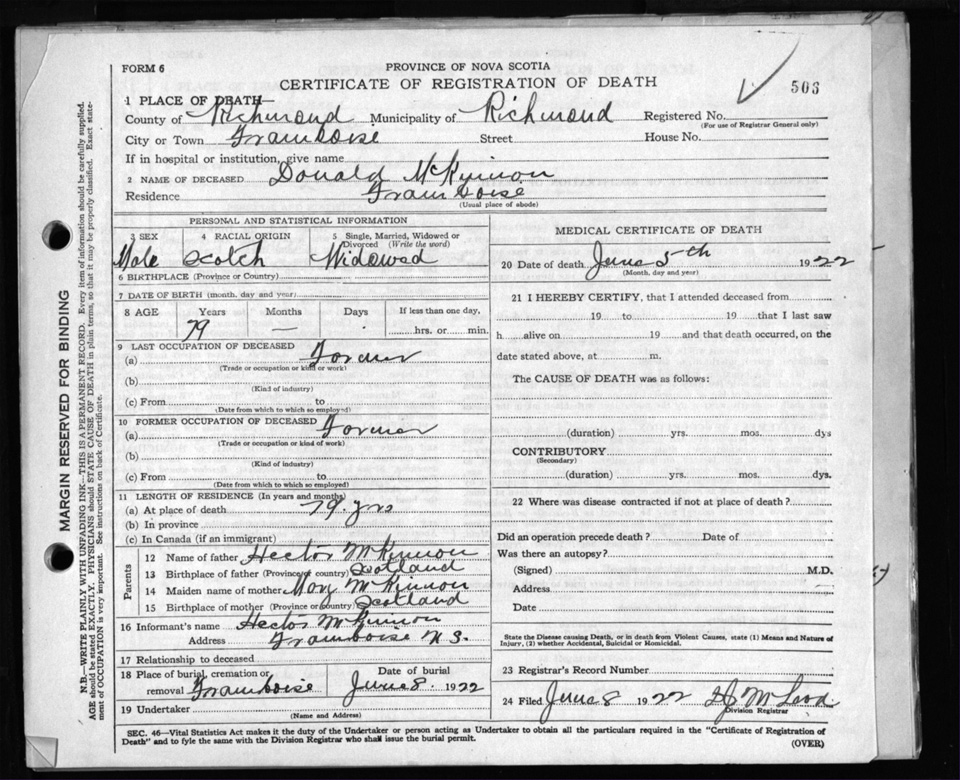 FORM 6
PROVINCE OF NOVA SCOTIA
CERTIFICATE OF REGISTRATION OF DEATH
503
1 PLACE OF DEATH—
County of Richmond Municipality of Richmond Registered No.
(For use of Registrar General only)
City or Town Framboise Street House No.
If in hospital or institution, give name
2 NAME OF DECEASED Donald McKinnon
Residence Framboise
(Usual place of abode)
PERSONAL AND STATISTICAL INFORMATION
3 SEX 4 RACIAL ORIGIN 5 Single, Married, Widowed or Divorced (Write the word)
Male Scotch Widowed
6 BIRTHPLACE (Province or Country)
7 DATE OF BIRTH (month, day and year)
8 AGE Years Months Days If less than one day,
79 — hrs. or min.
9 LAST OCCUPATION OF DECEASED
(a) Farmer
(Trade or occupation or kind of work)
(b)
(Kind of industry)
(c) From to
(Date from which to which so employed)
10 FORMER OCCUPATION OF DECEASED
(a) Farmer
(Trade or occupation or kind of work)
(b)
(Kind of industry)
(c) From to
(Date from which to which so employed)
11 LENGTH OF RESIDENCE (In years and months)
(a) At place of death 79 yrs
(b) In province
(c) In Canada (if an immigrant)
Parents
12 Name of father Hector McKinnon
13 Birthplace of father (Province or country) Scotland
14 Maiden name of mother Mary McKinnon
15 Birthplace of mother (Province or country) Scotland
16 Informant's name Hector McKinnon
Address Framboise N.S.
17 Relationship to deceased
18 Place of burial, cremation or removal Framboise Date of burial June 8. 1922
19 Undertaker
(Name and Address)
MEDICAL CERTIFICATE OF DEATH
20 Date of death June 5th 1922
(Month, day and year)
21 I HEREBY CERTIFY, that I attended deceased from
19 to 19 that I last saw
h alive on 19 and that death occurred, on the
date stated above, at m.
The CAUSE OF DEATH was as follows:
(duration) yrs. mos. dys
CONTRIBUTORY
(Secondary)
(duration) yrs. mos. dys.
22 Where was disease contracted if not at place of death?
Did an operation precede death? Date of
Was there an autopsy?
(Signed) M.D.
Address
Date
State the Disease causing Death, or in death from Violent Causes, state (1) Means and Nature of
Injury, (2) whether Accidental, Suicidal or Homicidal.
23 Registrar's Record Number
24 Filed June 8 1922 McLeod
Division Registrar
SEC. 46—Vital Statistics Act makes it the duty of the Undertaker or person acting as Undertaker to obtain all the particulars required in the "Certificate of Registration of
Death" and to fyle the same with the Division Registrar who shall issue the burial permit.
(OVER)
MARGIN RESERVED FOR BINDING
N.B.—WRITE PLAINLY WITH UNFADING INK—THIS IS A PERMANENT RECORD. Every item of information should be carefully supplied.
AGE should be stated EXACTLY. PHYSICIANS should STATE CAUSE OF DEATH in plain terms, so that it may be properly classified. Exact state-
ment of OCCUPATION is very important. See instructions on back of Certificate.